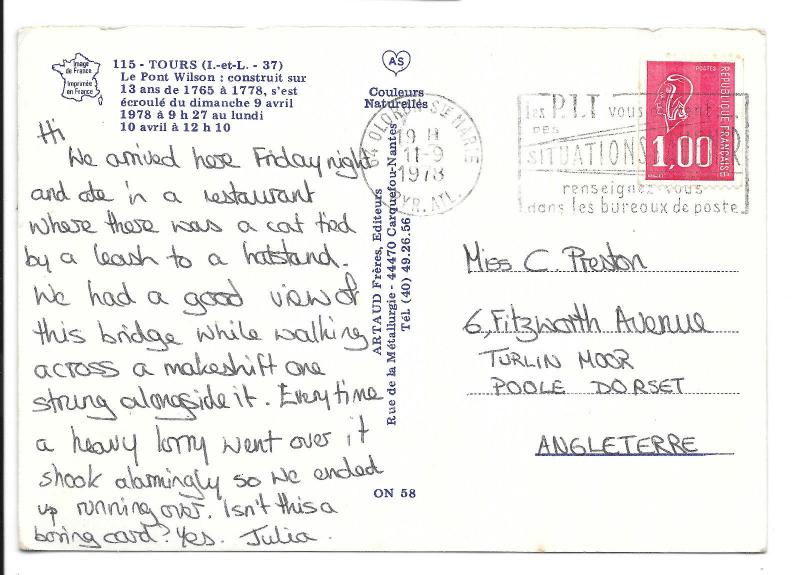 Image
de France
Imprimée
en France
115 - TOURS (I.-et-L. - 37)
Le Pont Wilson : construit sur
13 ans de 1765 à 1778, s'est
écroulé du dimanche 9 avril
1978 à 9 h 27 au lundi
10 avril à 12 h 10
AS
Couleurs
Naturelles
Hi
We arrived here Friday night
and ate in a restaurant
where there was a cat tied
by a leash to a hatstand.
We had a good view of
this bridge while walking
across a makeshift one
strung alongside it. Every time
a heavy lorry went over it
shook alarmingly so we ended
up running over. Isn't this a
boring card? Yes. Julia.
ARTAUD Frères, Editeurs
Rue de la Métallurgie - 44470 Carquefou-Nantes
Tél. (40) 49.26.56
ON 58
64 OLORON STE MARIE
19 H
11-9
1978
PYR. ATL.
les P.T.T vous
DES
SITUATIONS
renseignez vous
dans les bureaux de poste
POSTES
REPUBLIQUE FRANÇAISE
1,00
Miss C. Preston
6, Fitzworth Avenue
TURLIN MOOR
POOLE DORSET
ANGLETERRE